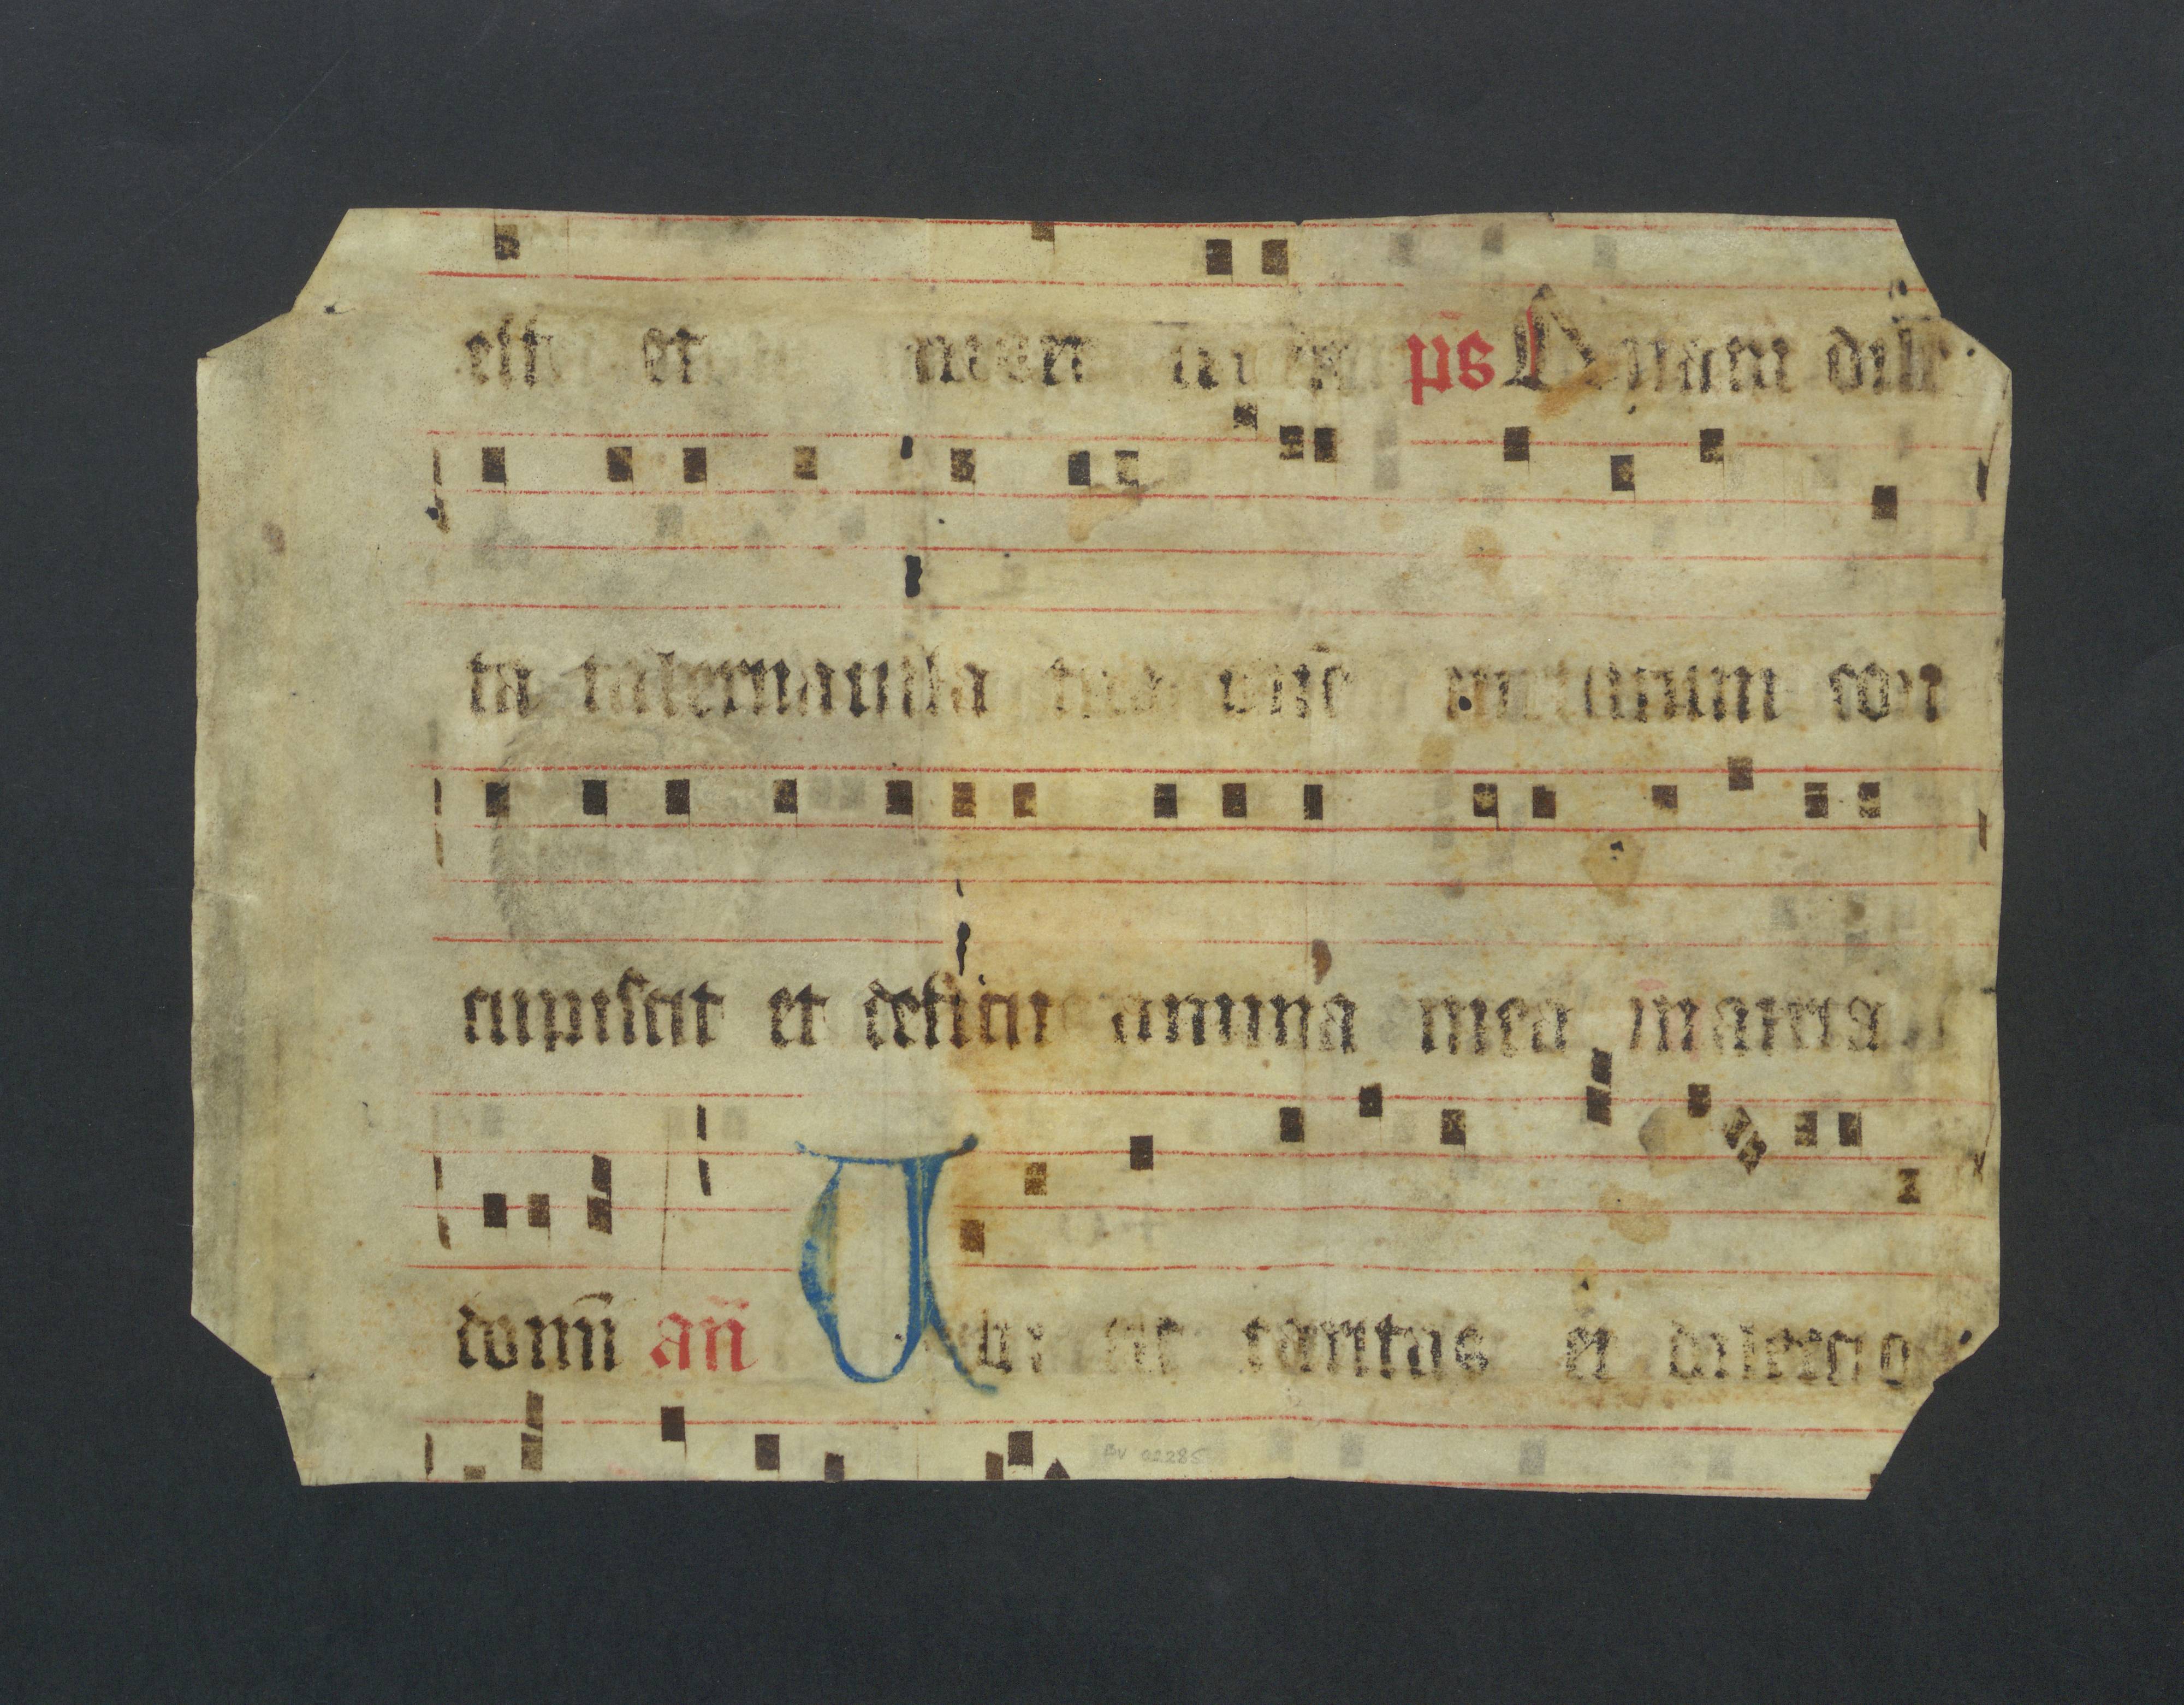 eius et in ps Quam dilec
ta tabernacula tua domine virtutum con
cupiscit et deficit anima mea in atria
domı̄ an̄ Ubi est caritas et dilectio
BV 02285